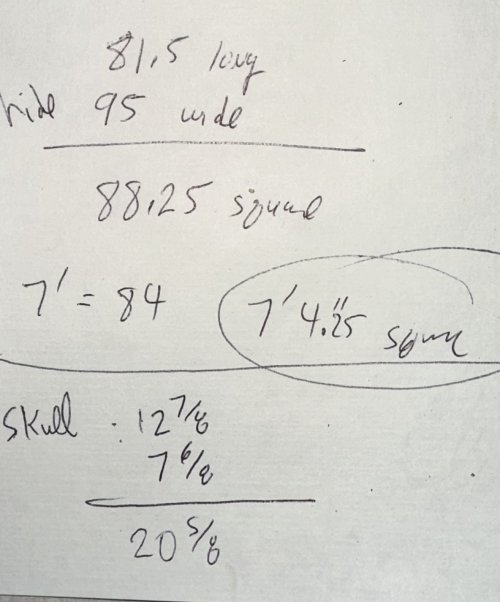 81.5 long
hide 95 wide
88.25 square
7' = 84
7' 4.25" square
Skull : 12 7/8
7 6/8
20 5/8